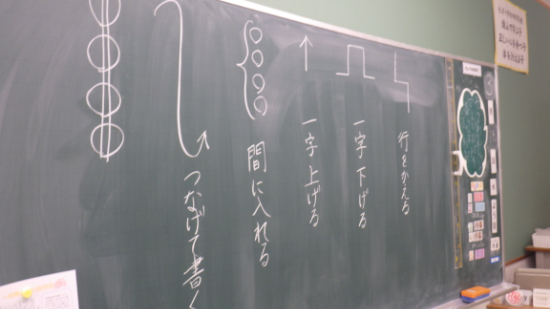 行をかえる
一字下げる
一字上げる
間に入れる
つなげて書く